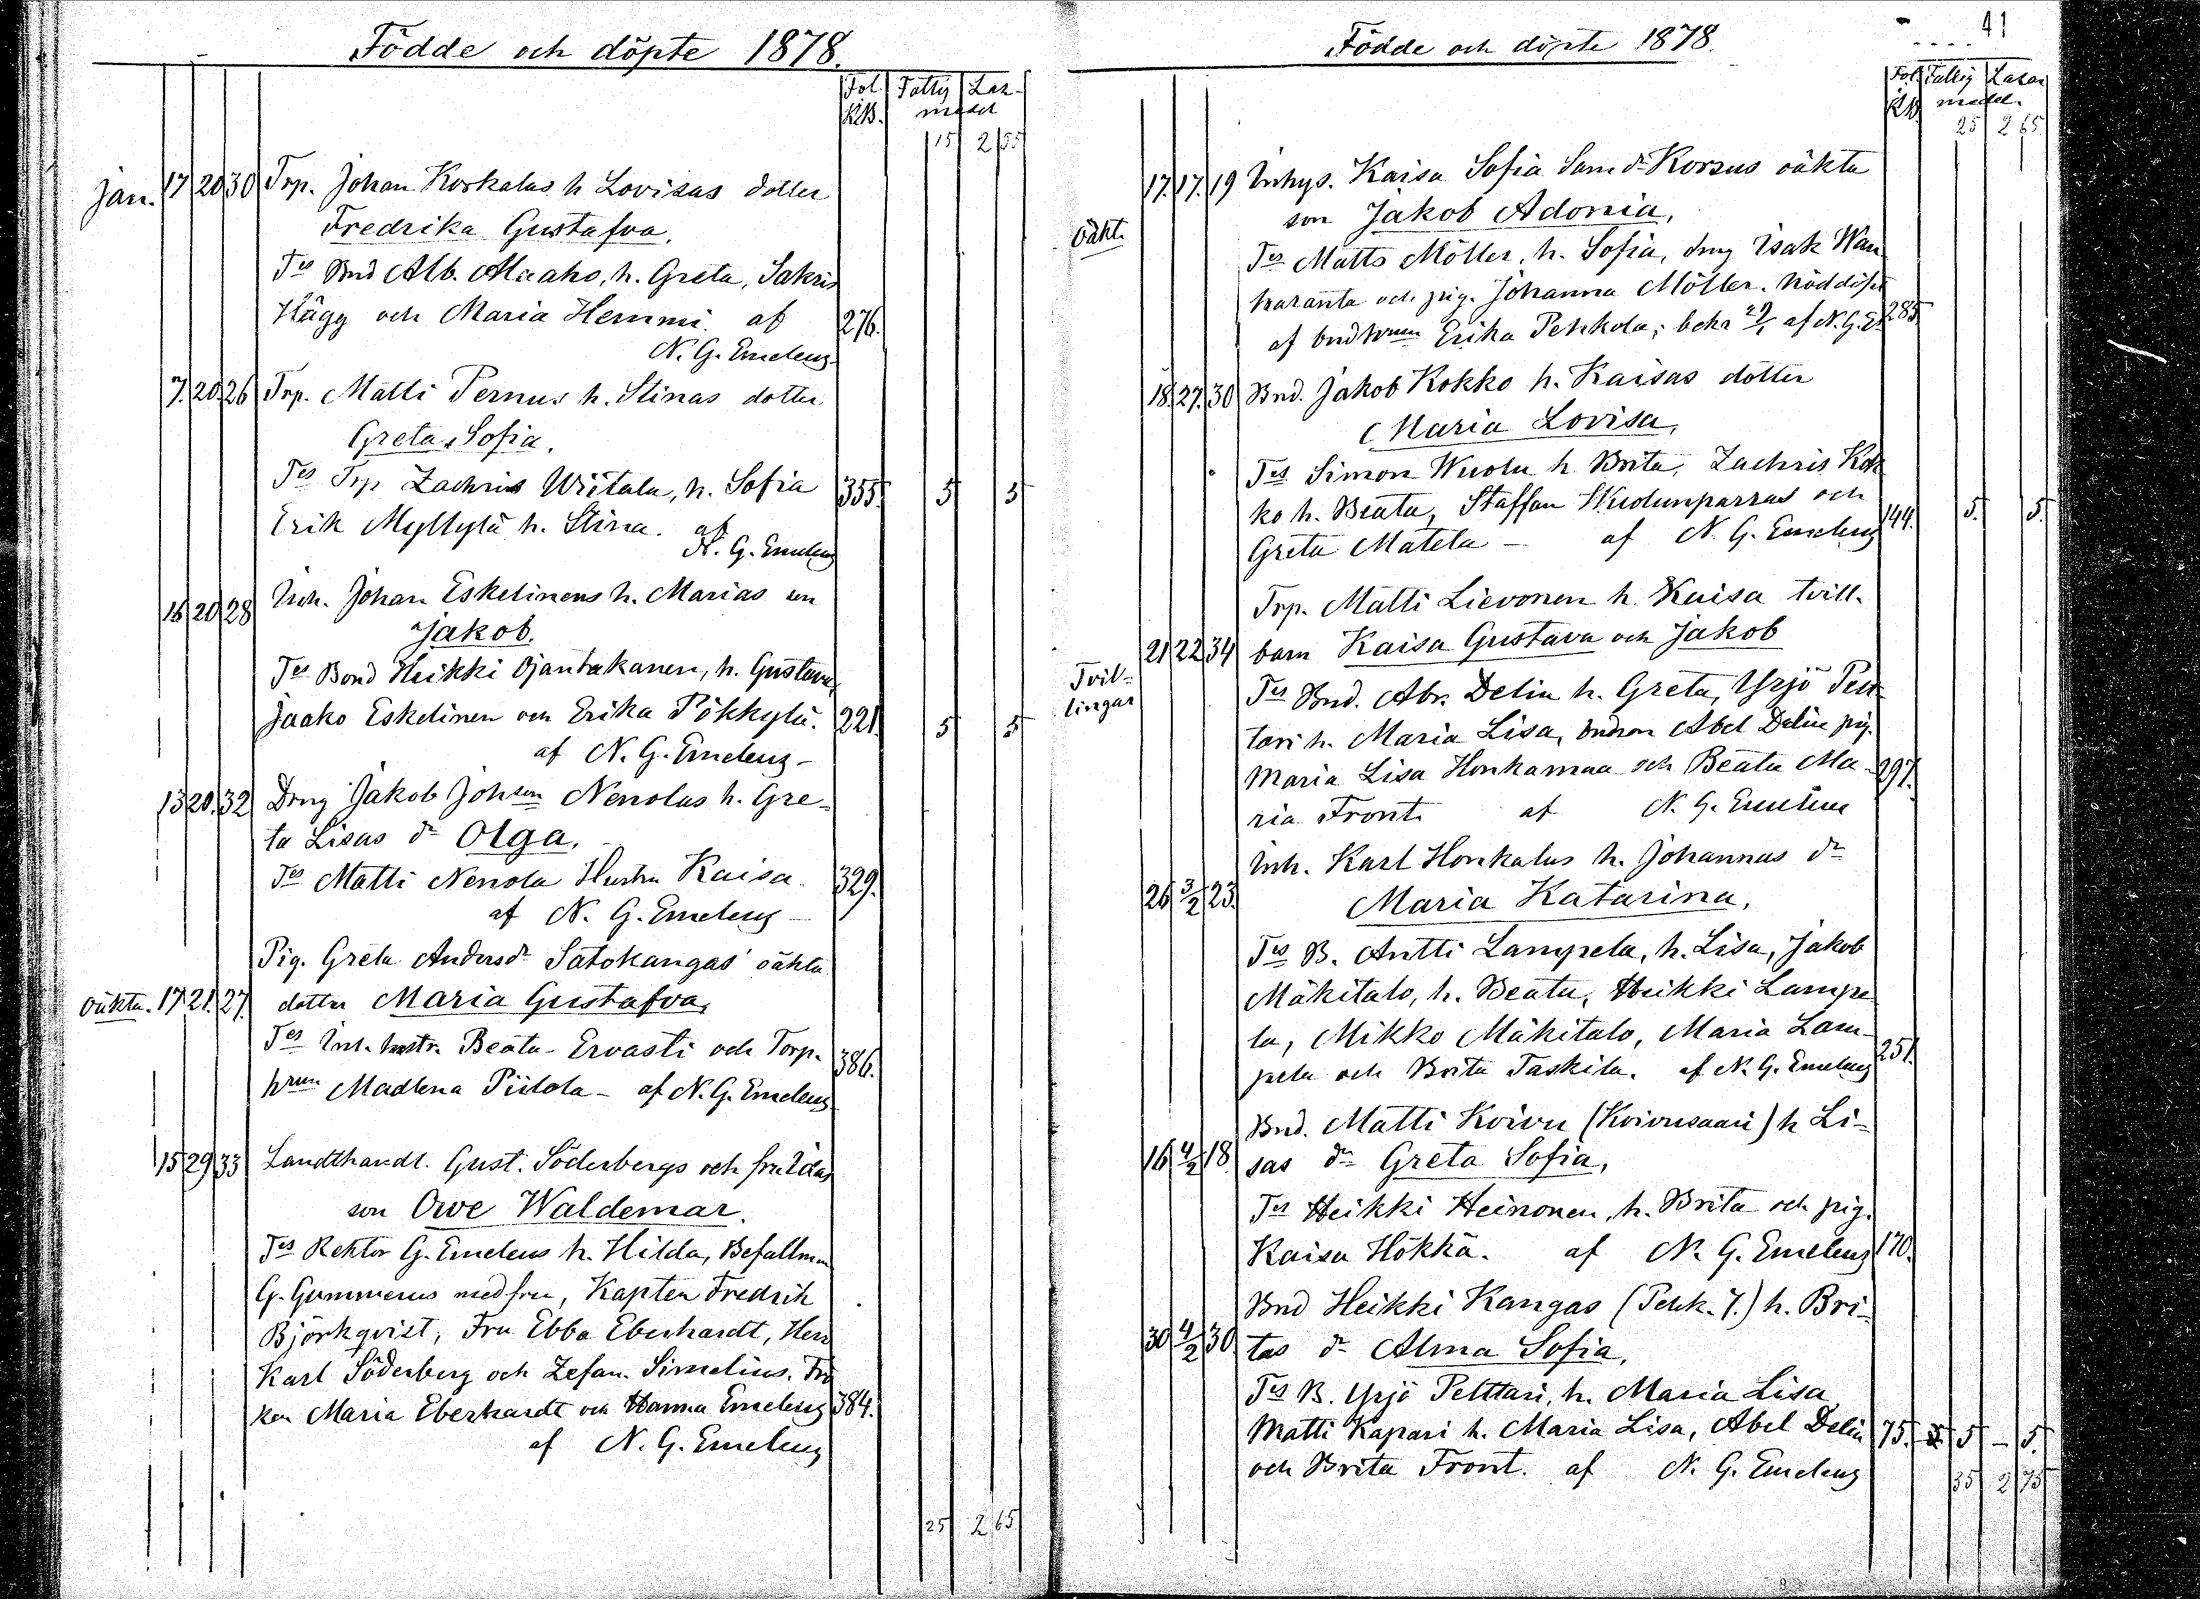 Födde och döpte 1878.
Fol. K.B. Fattig Laz-
medel
15 2 55
Jan. 17 20 30 Trp. Johan Korkalas h Lovisas dotter
Fredrika Gustafva.
Tes Bnd Alb. Alaaho, h. Greta, Sakris
Hägg och Maria Hemmi. af 276.
N. G. Emeleus
7. 20 26 Trp. Matti Pernus h. Stinas dotter
Greta Sofia.
Tes Trp Zachris Wiitala, h. Sofia 355. 5 5
Erik Myllylä h. Stina. af
N. G. Emeleus
Inh. Johan Eskelinens h. Marias son
16 20 28 Jakob.
Tes Bond Heikki Ojantakanen, h. Gustava,
Jaako Eskelinen och Erika Pökkylä. 221. 5 5
af N. G. Emeleus -
13 20. 32 Dreng Jakob Johsson Nenolas h. Gre-
ta Lisas dr Olga.
Tes Matti Nenola Hustru Kaisa. 329.
af N. G. Emeleus -
Pig. Greta Andersdr Satokangas' oäkta
oäkta. 17 21. 27. dotter Maria Gustafva,
Tes Inh. hustr. Beata Ervasti och Torp. 386.
hrun Madlena Piilola - af N. G. Emeleus
15 29 33 Landthandl. Gust. Söderbergs och fru Idas
son Owe Waldemar.
Tes Rektor G. Emeleus h. Hilda, Befallm
G. Gummerus med fru, Kapten Fredrik
Björkqvist, Fru Ebba Eberhardt, Herr
Karl Söderberg och Zefan. Simelius. Frö
ken Maria Eberhardt och Hanna Emeleus 384.
af N. G. Emeleus
25 2 65
41
Födde och döpte 1878.
Fol. K.B. Fattig Lazar
medel.
25 2 65
17. 17. 19 Inhys. Kaisa Sofia Samdr Korsus oäkta
son Jakob Adonia,
Oäkt. Tes Matts Möller, h. Sofia, dreng Isak Wan
karanta och pig. Johanna Möller. Nöddöpt
af bndhrun Erika Pehkola; bekr 29/1 af N. G. E. 285
18. 27. 30 Bnd. Jakob Kokko h. Kaisas dotter
Maria Lovisa,
Tes Simon Wuolu h Brita, Zachris Kok
ko h. Beata, Staffan Kudunparras och
Greta Matela - af N. G. Emeleus 144. 5. 5.
Trp. Matti Lievonen h. Kaisa tvill-
21 22 34 barn Kaisa Gustava och Jakob
Tvil-
lingar Tes Bnd. Abr. Delin h. Greta, Yrjö Pelt-
tari h. Maria Lisa, bndson Abel Delin pig.
Maria Lisa Honkamaa och Beata Ma- 297.
ria Front. af N. G. Emeleus
Inh. Karl Honkalas h. Johannas dr
26 3/2 23. Maria Katarina,
Tes B. Antti Lampela, h. Lisa, Jakob
Mäkitalo, h. Beata, Heikki Lampe
la, Mikko Mäkitalo, Maria Lam-
pela och Brita Taskila. af N. G. Emeleus 251.
Bnd. Matti Koivu (Koivusaari) h Li-
16 4/2 18. sas dr Greta Sofia,
Tes Heikki Heinonen, h. Brita och pig.
Kaisa Hökkä. af N. G. Emeleus 170.
Bnd Heikki Kangas (Pehk. 7.) h. Bri-
30 4/2 30. tas dr Alma Sofia,
Tes B. Yrjö Pelttari, h. Maria Lisa
Matti Kapari h. Maria Lisa, Abel Delin 75. 5 - 5.
och Brita Front. af N. G. Emeleus
35 2 75